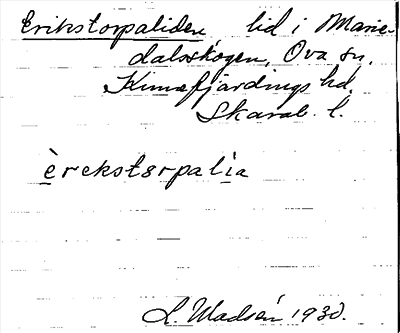 Erikstorpaliden, lid i Marie-
dalsskogen, Ova sn,
Kinnefjärdings hd.
Skarab. l.
èrekstɜrpalia
L. Wadsén 1930.